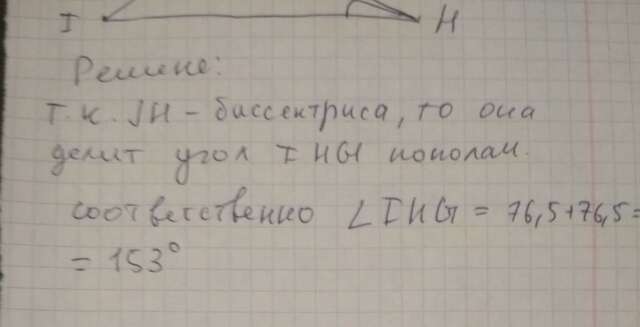 I H
Решение:
т.к. JH - биссектриса, то она
делит угол IHG пополам.
соответственно ∠IHG = 76,5+76,5=
= 153°